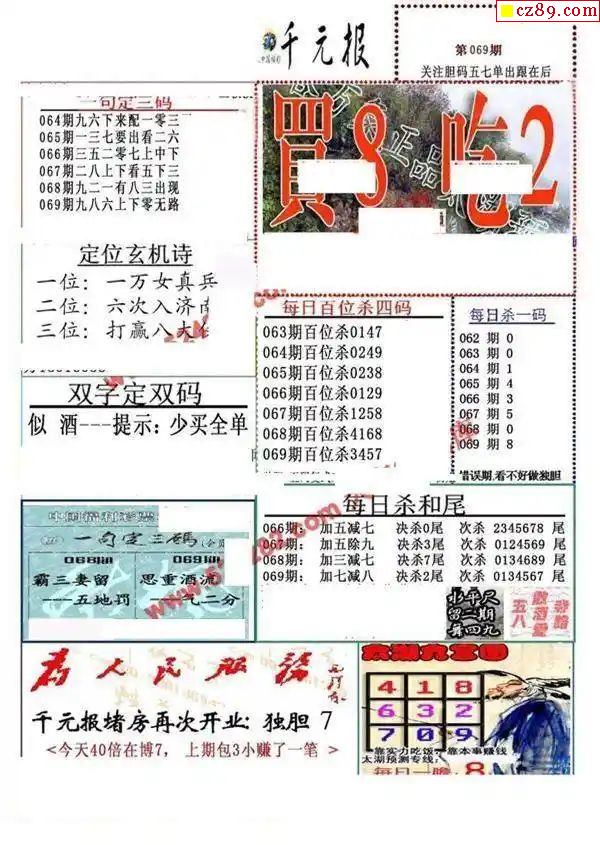 cz89.com
千元报
第069期
关注胆码五七单出跟在后
一句定三码
064期九六下来配一零三
065期一三七要出看二六
066期三五二零七上中下
067期二八上下看五下三
068期九二一有八三出现
069期九八六上下零无路
買8 吃2
定位玄机诗
一位：一万女真兵
二位：六次入济南
三位：打赢八大
每日百位杀四码
063期百位杀0147
064期百位杀0249
065期百位杀0238
066期百位杀0129
067期百位杀1258
068期百位杀4168
069期百位杀3457
每日杀一码
062 期 0
063 期 0
064 期 1
065 期 4
066 期 3
067 期 5
068 期 0
069 期 8
错误期,看不好做独胆
双字定双码
似 酒---提示：少买全单
每日杀和尾
066期： 加五减七 决杀0尾 次杀 2345678 尾
067期： 加五除九 决杀3尾 次杀 0124569 尾
068期： 加三减七 决杀7尾 次杀 0134569 尾
069期： 加七减八 决杀2尾 次杀 0134567 尾
一句定三码
068期 069期
霸三妻留 思重酒流
---五地罚 ---气二分
为人民服务
千元报堵房再次开业：独胆 7
<今天40倍在博7， 上期包3小赚了一笔 >
太湖九宫图
4 1 8
6 3 2
7 0 9
靠实力吃饭，靠本事赚钱
太湖预测专线：
每日一胆： 8